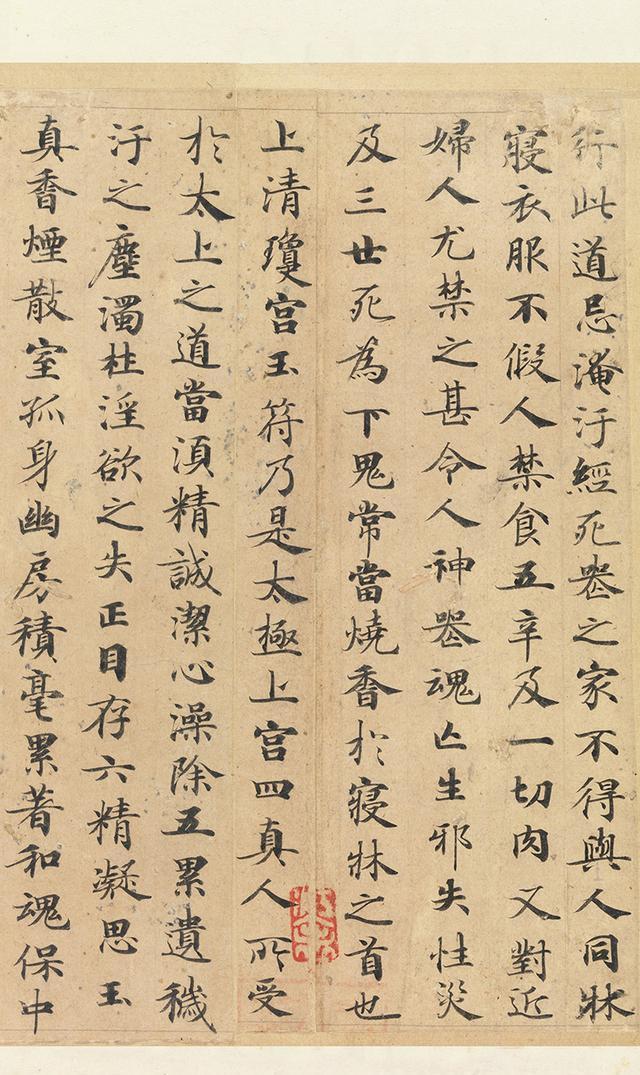 行此道忌淹汙經死喪之家不得與人同牀
寢衣服不假人禁食五辛及一切肉又對近
婦人尤禁之甚令人神喪魂亡生邪失性災
及三世死為下鬼常當燒香於寢牀之首也
上清瓊宮玉符乃是太極上宮四真人所受
於太上之道當須精誠潔心澡除五累遺穢
汙之塵濁杜淫欲之失正目存六精凝思玉
真香煙散室孤身幽房積毫累著和魂保中